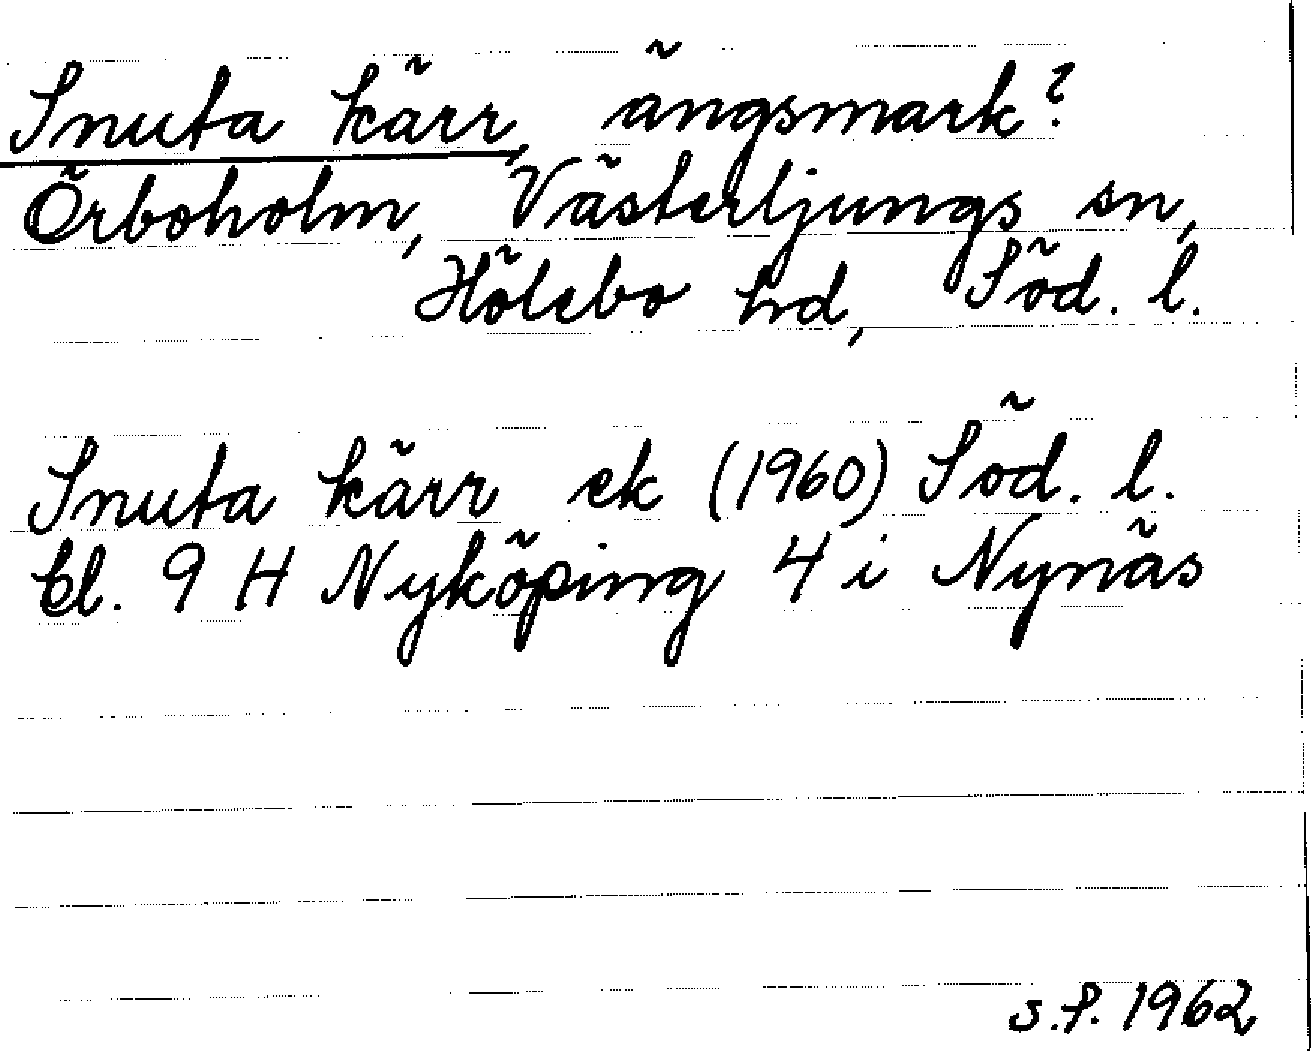 Snuta kärr, ängsmark?
Örboholm, Västerljungs sn,
Hölebo hd, Söd. l.
Snuta kärr ek (1960) Söd. l.
bl. 9 H Nyköping 4 i Nynäs
s.f. 1962